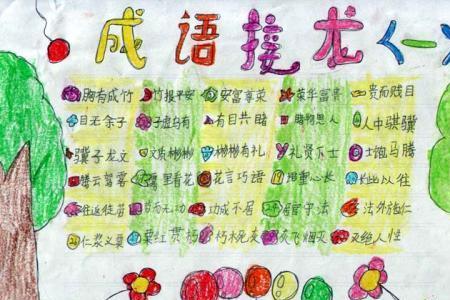 成语接龙(一)
胸有成竹 竹报平安 安富尊荣 荣华富贵 贵而贱目
目无余子 子虚乌有 有目共睹 睹物思人 人中骐骥
骥子龙文 文质彬彬 彬彬有礼 礼贤下士 士饱马腾
腾云驾雾 雾里看花 花言巧语 语重心长 长此以往
往返徒劳 劳而无功 功成不居 居官守法 法外施仁
仁浆义粟 粟红贯朽 朽木死灰 灰飞烟灭 灭绝人性